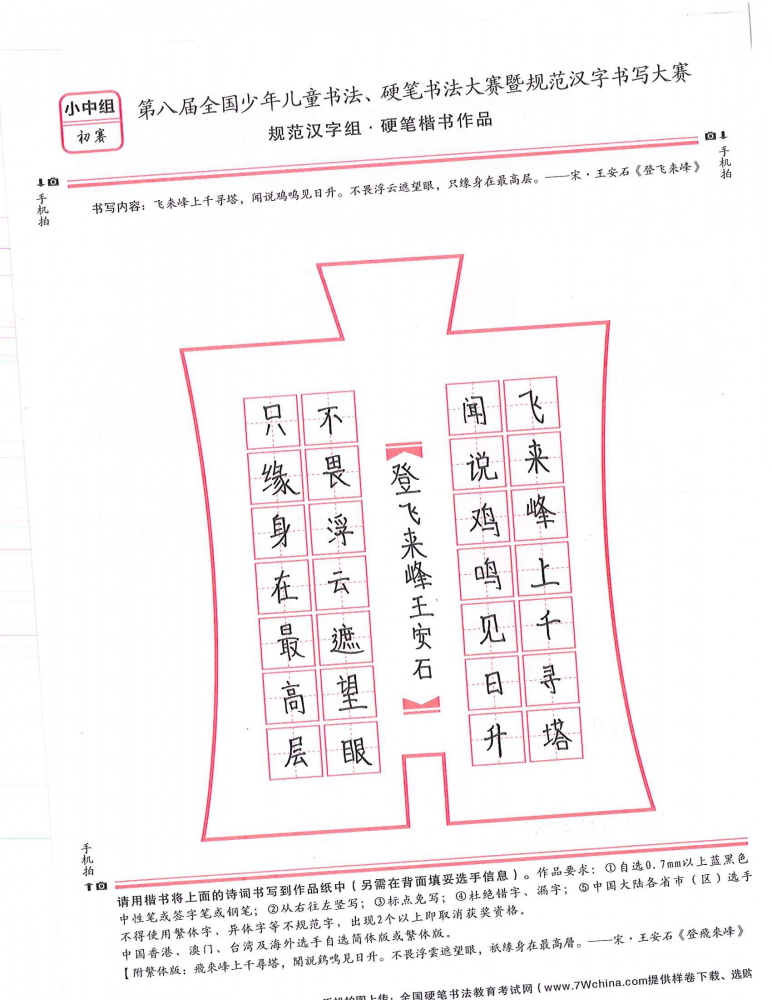 小中组
初赛
第八届全国少年儿童书法、硬笔书法大赛暨规范汉字书写大赛
规范汉字组·硬笔楷书作品
手机拍
手机拍
书写内容：飞来峰上千寻塔，闻说鸡鸣见日升。不畏浮云遮望眼，只缘身在最高层。——宋·王安石《登飞来峰》
飞来峰上千寻塔
闻说鸡鸣见日升
登飞来峰王安石
不畏浮云遮望眼
只缘身在最高层
手机拍
请用楷书将上面的诗词书写到作品纸中（另需在背面填妥选手信息）。作品要求：①自选0.7mm以上蓝黑色
中性笔或签字笔或钢笔；②从右往左竖写；③标点免写；④杜绝错字、漏字；⑤中国大陆各省市（区）选手
不得使用繁体字、异体字等不规范字，出现2个以上即取消获奖资格。
中国香港、澳门、台湾及海外选手自选简体版或繁体版。
【附繁体版：飛來峰上千尋塔，聞說鷄鳴見日升。不畏浮雲遮望眼，祇緣身在最高層。——宋·王安石《登飛來峰》
手机拍图上传：全国硬笔书法教育考试网（www.7Wchina.com提供样卷下载、选购